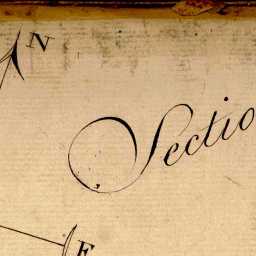 N
Sectio
E